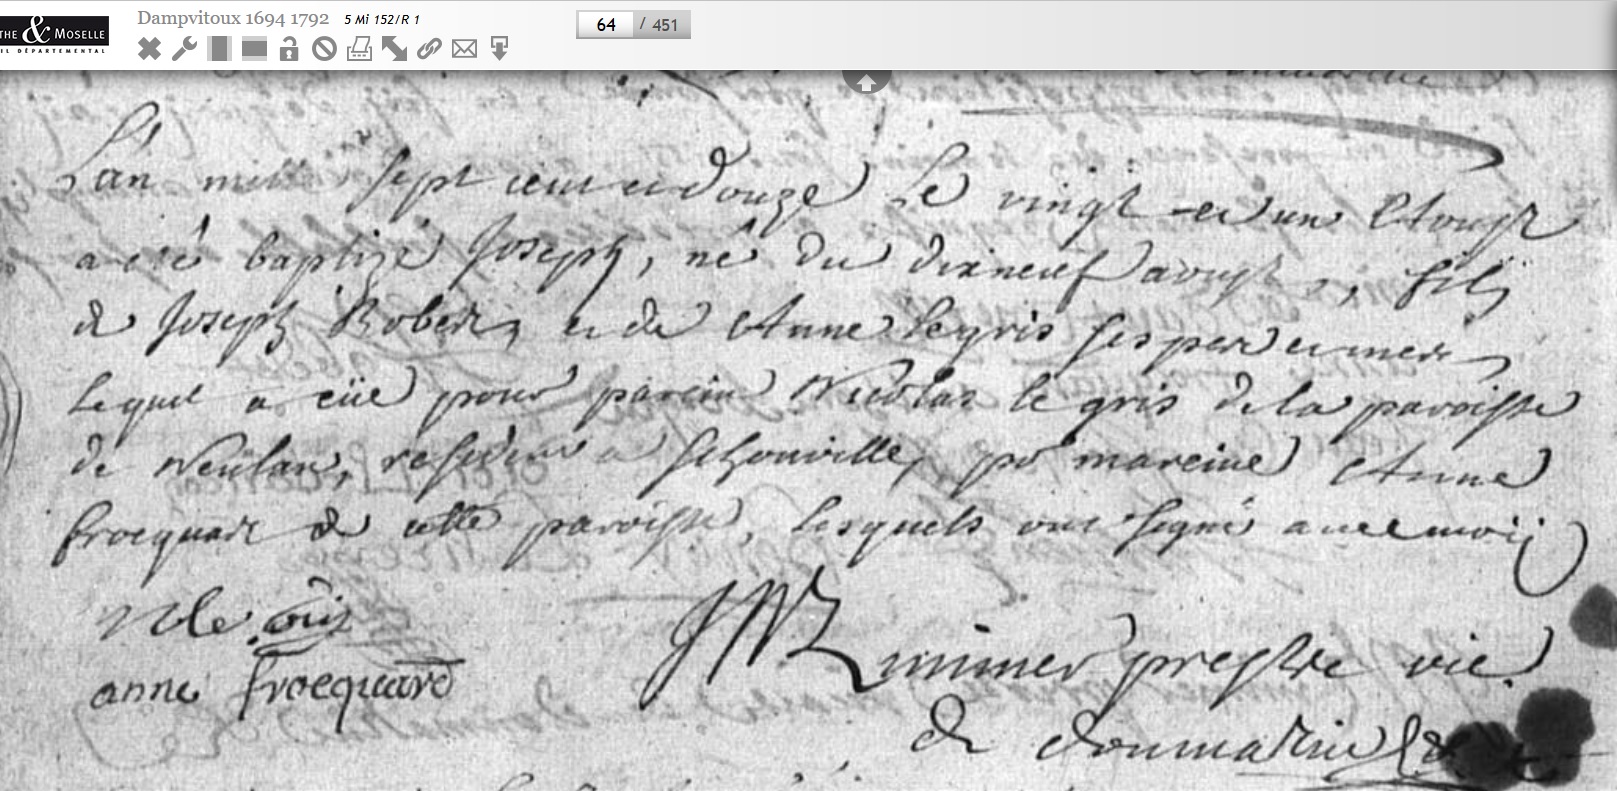 THE & MOSELLE
IL DÉPARTEMENTAL
Dampvitoux 1694 1792 5 Mi 152/R 1
64 / 451
L'an mille sept cent et douze Le vingt et un Aoust
a eté baptizé Joseph, né du dixneuf aoust, fils
de Joseph Robert, et de Anne le gris ses pere et mere
Lequel a eüe pour parein Nicolas le gris de la paroisse
de residant a pr mareine Anne
frocquard de cette paroisse, lesquels ont signé avec moÿ
N le gris
anne frocquard
prestre vic
de domartin